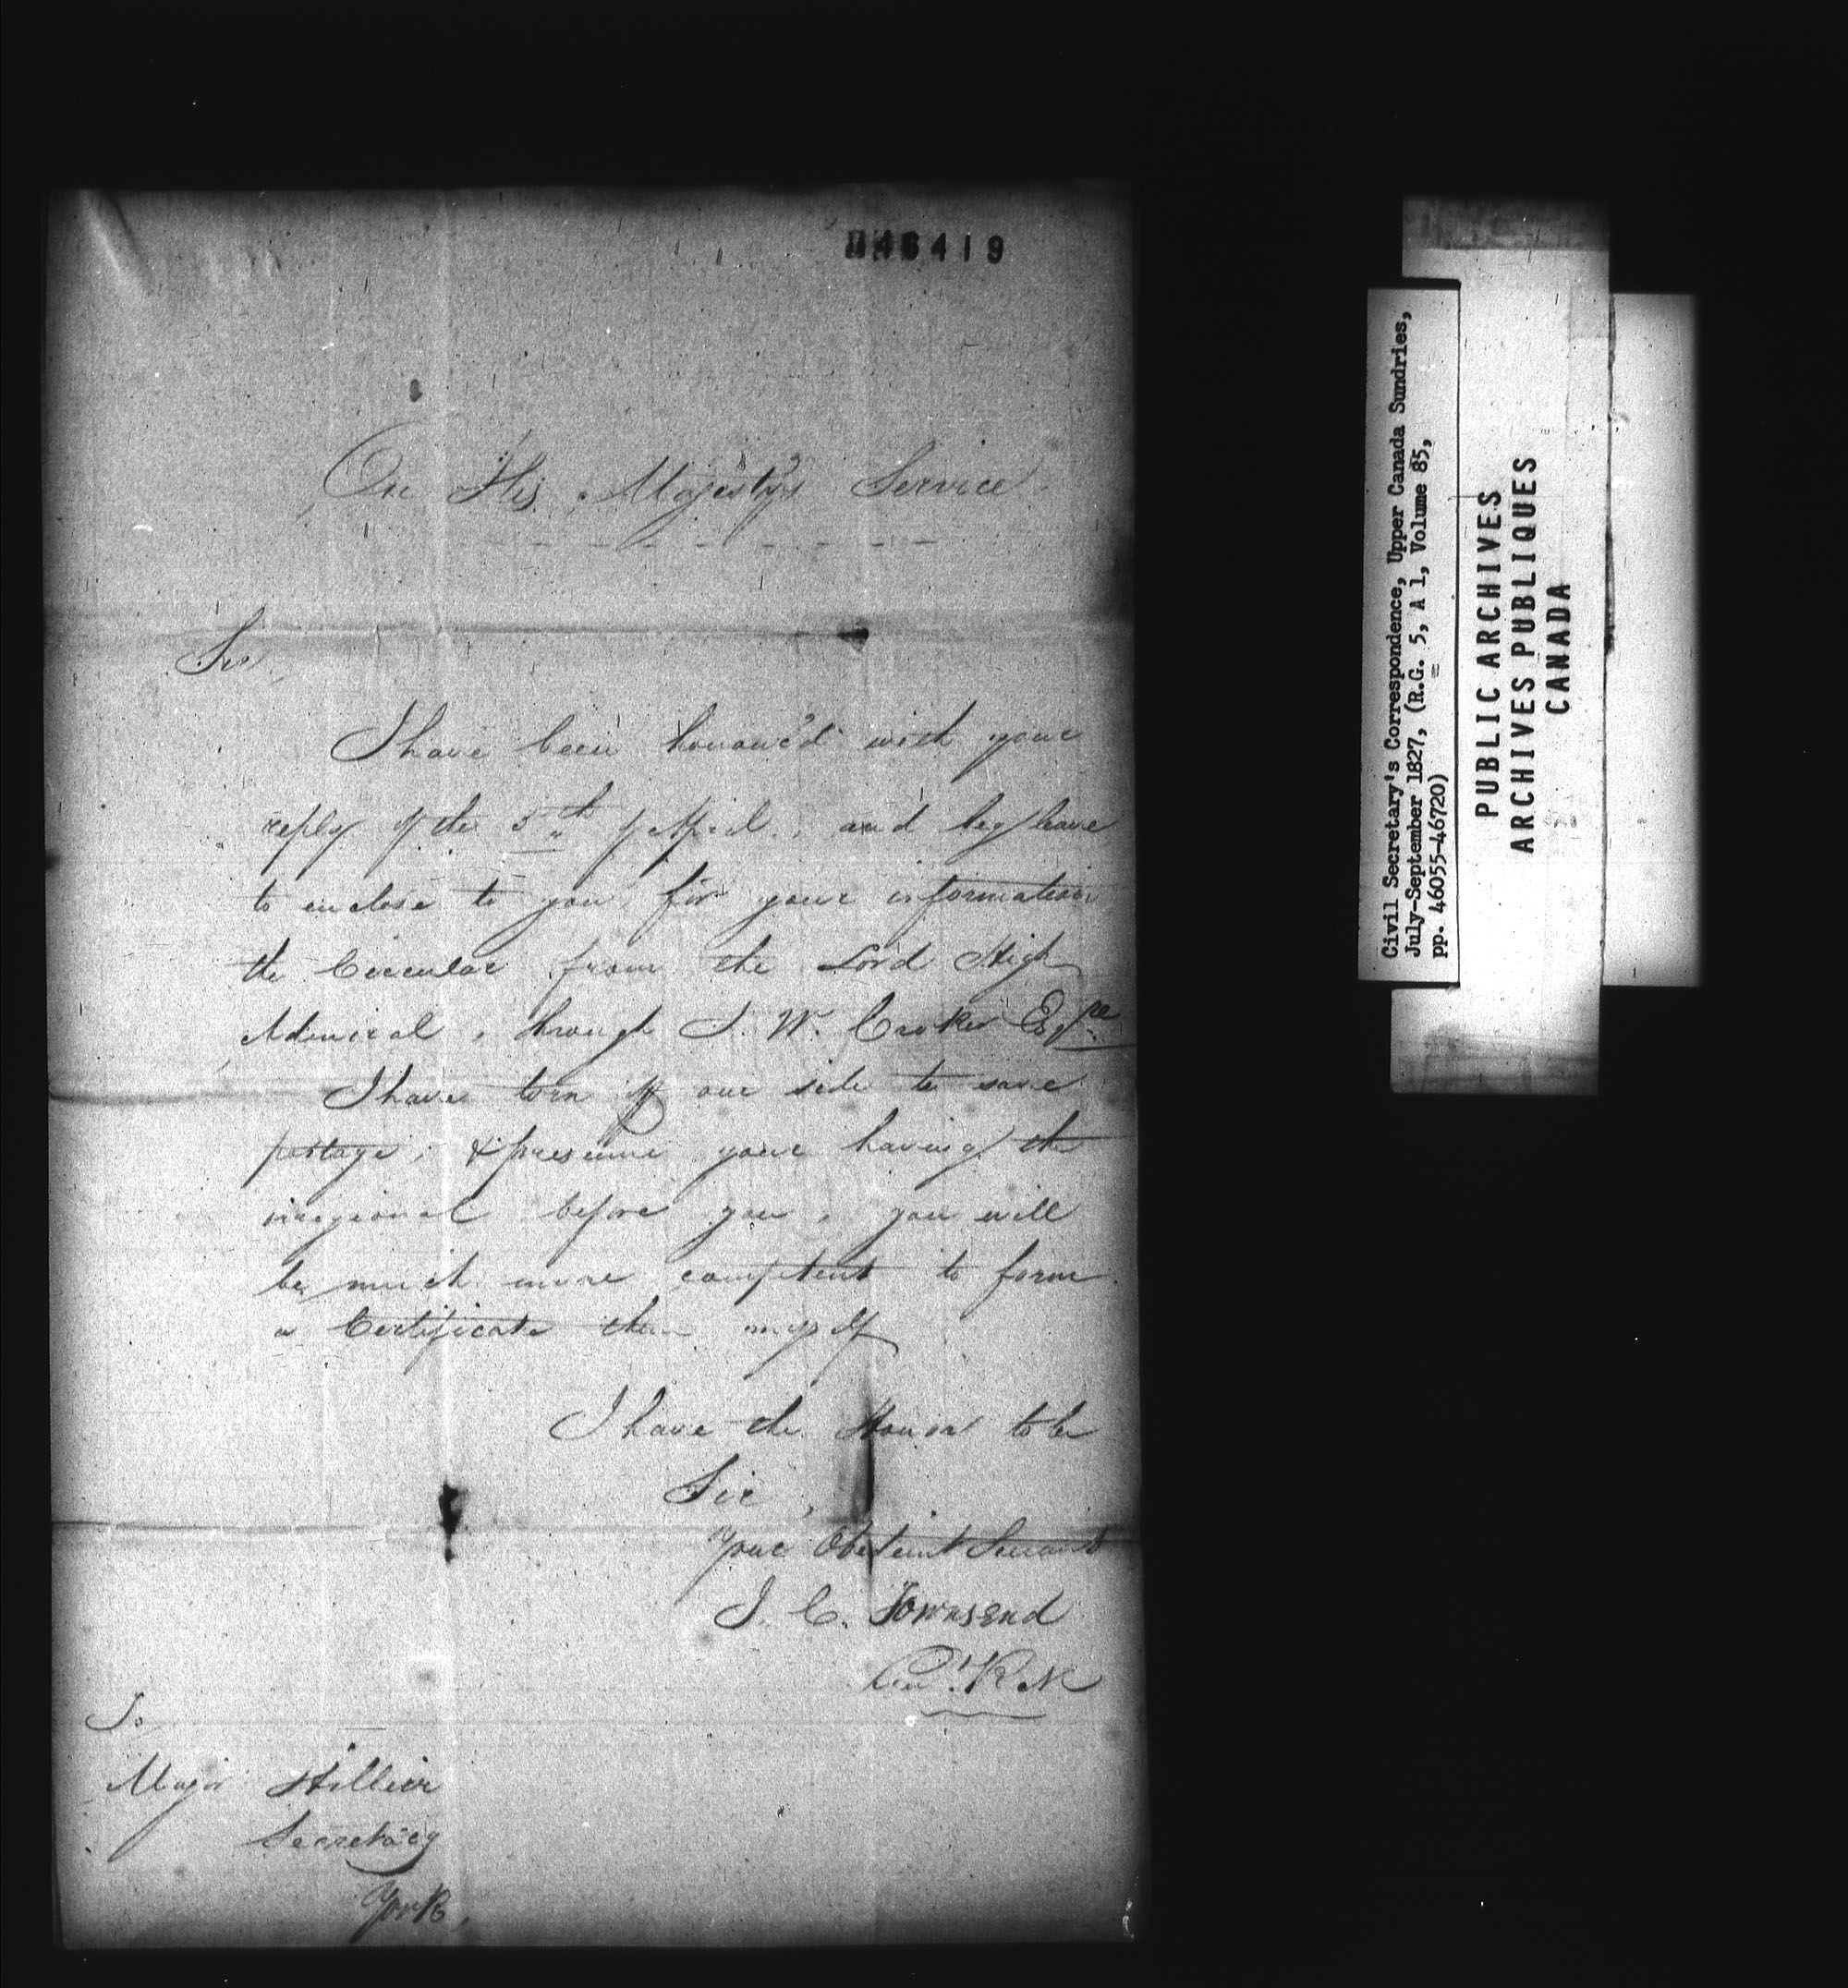 46419
On His Majesty's Service
Sir,
I have been honour'd with your
reply of the 5th of April, and beg leave
to enclose to you for your information
the Circular from the Lord High
Admiral, through J. W. Croker Esqre
I have torn off one side to save
postage; & presume your having the
before you, you will
be much more competent to form
a Certificate than myself
I have the Honor to be
Sir,
Your Obedient Servant
J. C. Townsend
R N
To
Major Hillier
Secretary
York,
Civil Secretary's Correspondence, Upper Canada Sundries,
July-September 1827, (R.G. 5, A 1, Volume 85,
pp. 46055-46720)
PUBLIC ARCHIVES
ARCHIVES PUBLIQUES
CANADA